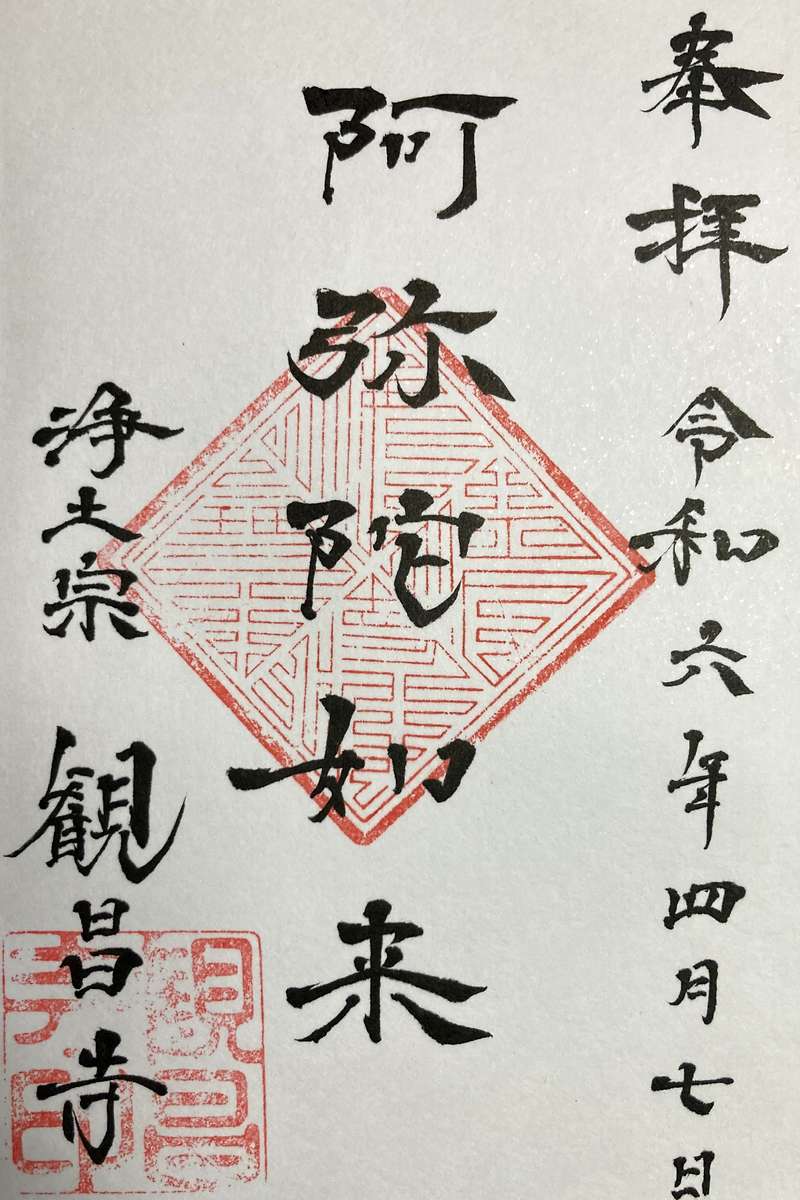 奉拝 令和六年四月七日
阿弥陀如来
浄土宗 観昌寺
観昌寺印